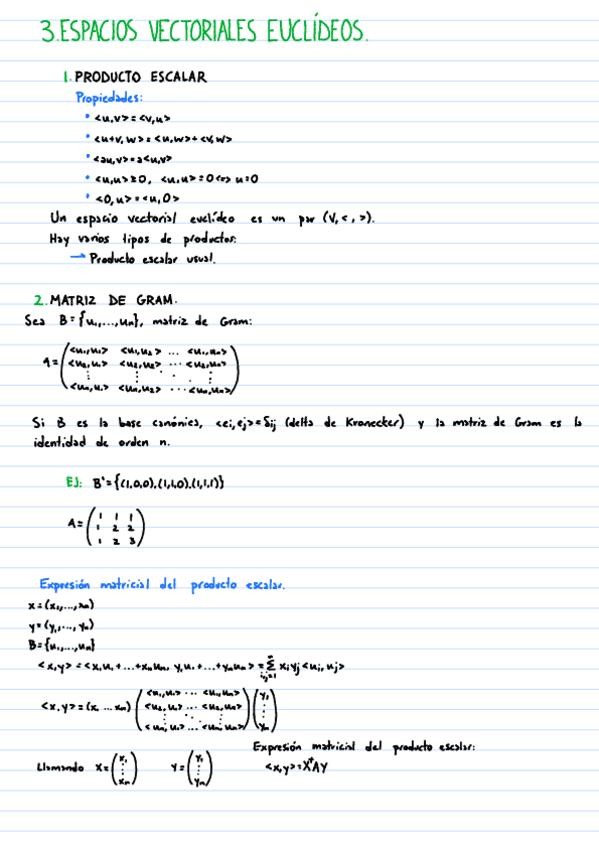 3. ESPACIOS VECTORIALES EUCLÍDEOS.
1. PRODUCTO ESCALAR
Propiedades:
• <u,v> = <v,u>
• <u+v, w> = <u,w> + <v,w>
• <au,v> = a<u,v>
• <u,u> ≥ 0, <u,u> = 0 <=> u=0
• <0,u> = <u,0>
Un espacio vectorial euclídeo es un par (V, < , >).
Hay varios tipos de productos:
→ Producto escalar usual.
2. MATRIZ DE GRAM.
Sea B = {u₁,...,uₙ}, matriz de Gram:
<u₁,u₁> <u₁,u₂> ... <u₁,uₙ>
A = <u₂,u₁> <u₂,u₂> ... <u₂,uₙ>
⋮ ⋮ ⋱ ⋮
<uₙ,u₁> <uₙ,u₂> ... <uₙ,uₙ>
Si B es la base canónica, <ei,ej> = δij (delta de Kronecker) y la matriz de Gram es la
identidad de orden n.
EJ: B' = {(1,0,0),(1,1,0),(1,1,1)}
1 1 1
A = 1 2 2
1 2 3
Expresión matricial del producto escalar.
x = (x₁,...,xₙ)
y = (y₁,...,yₙ)
B = {u₁,...,uₙ}
<x,y> = <x₁u₁ + ... + xₙuₙ, y₁u₁ + ... + yₙuₙ> = Σⁿ i,j=1 xi yj <ui, uj>
<u₁,u₁> ... <u₁,uₙ> y₁
<x,y> = (x₁ ... xₙ) <u₂,u₁> ... <u₂,uₙ> ⋮
⋮ ⋱ ⋮
<uₙ,u₁> ... <uₙ,uₙ> yₙ
Expresión matricial del producto escalar:
Llamando X = (x₁ ⋮ xₙ) Y = (y₁ ⋮ yₙ) <x,y> = XᵗAY